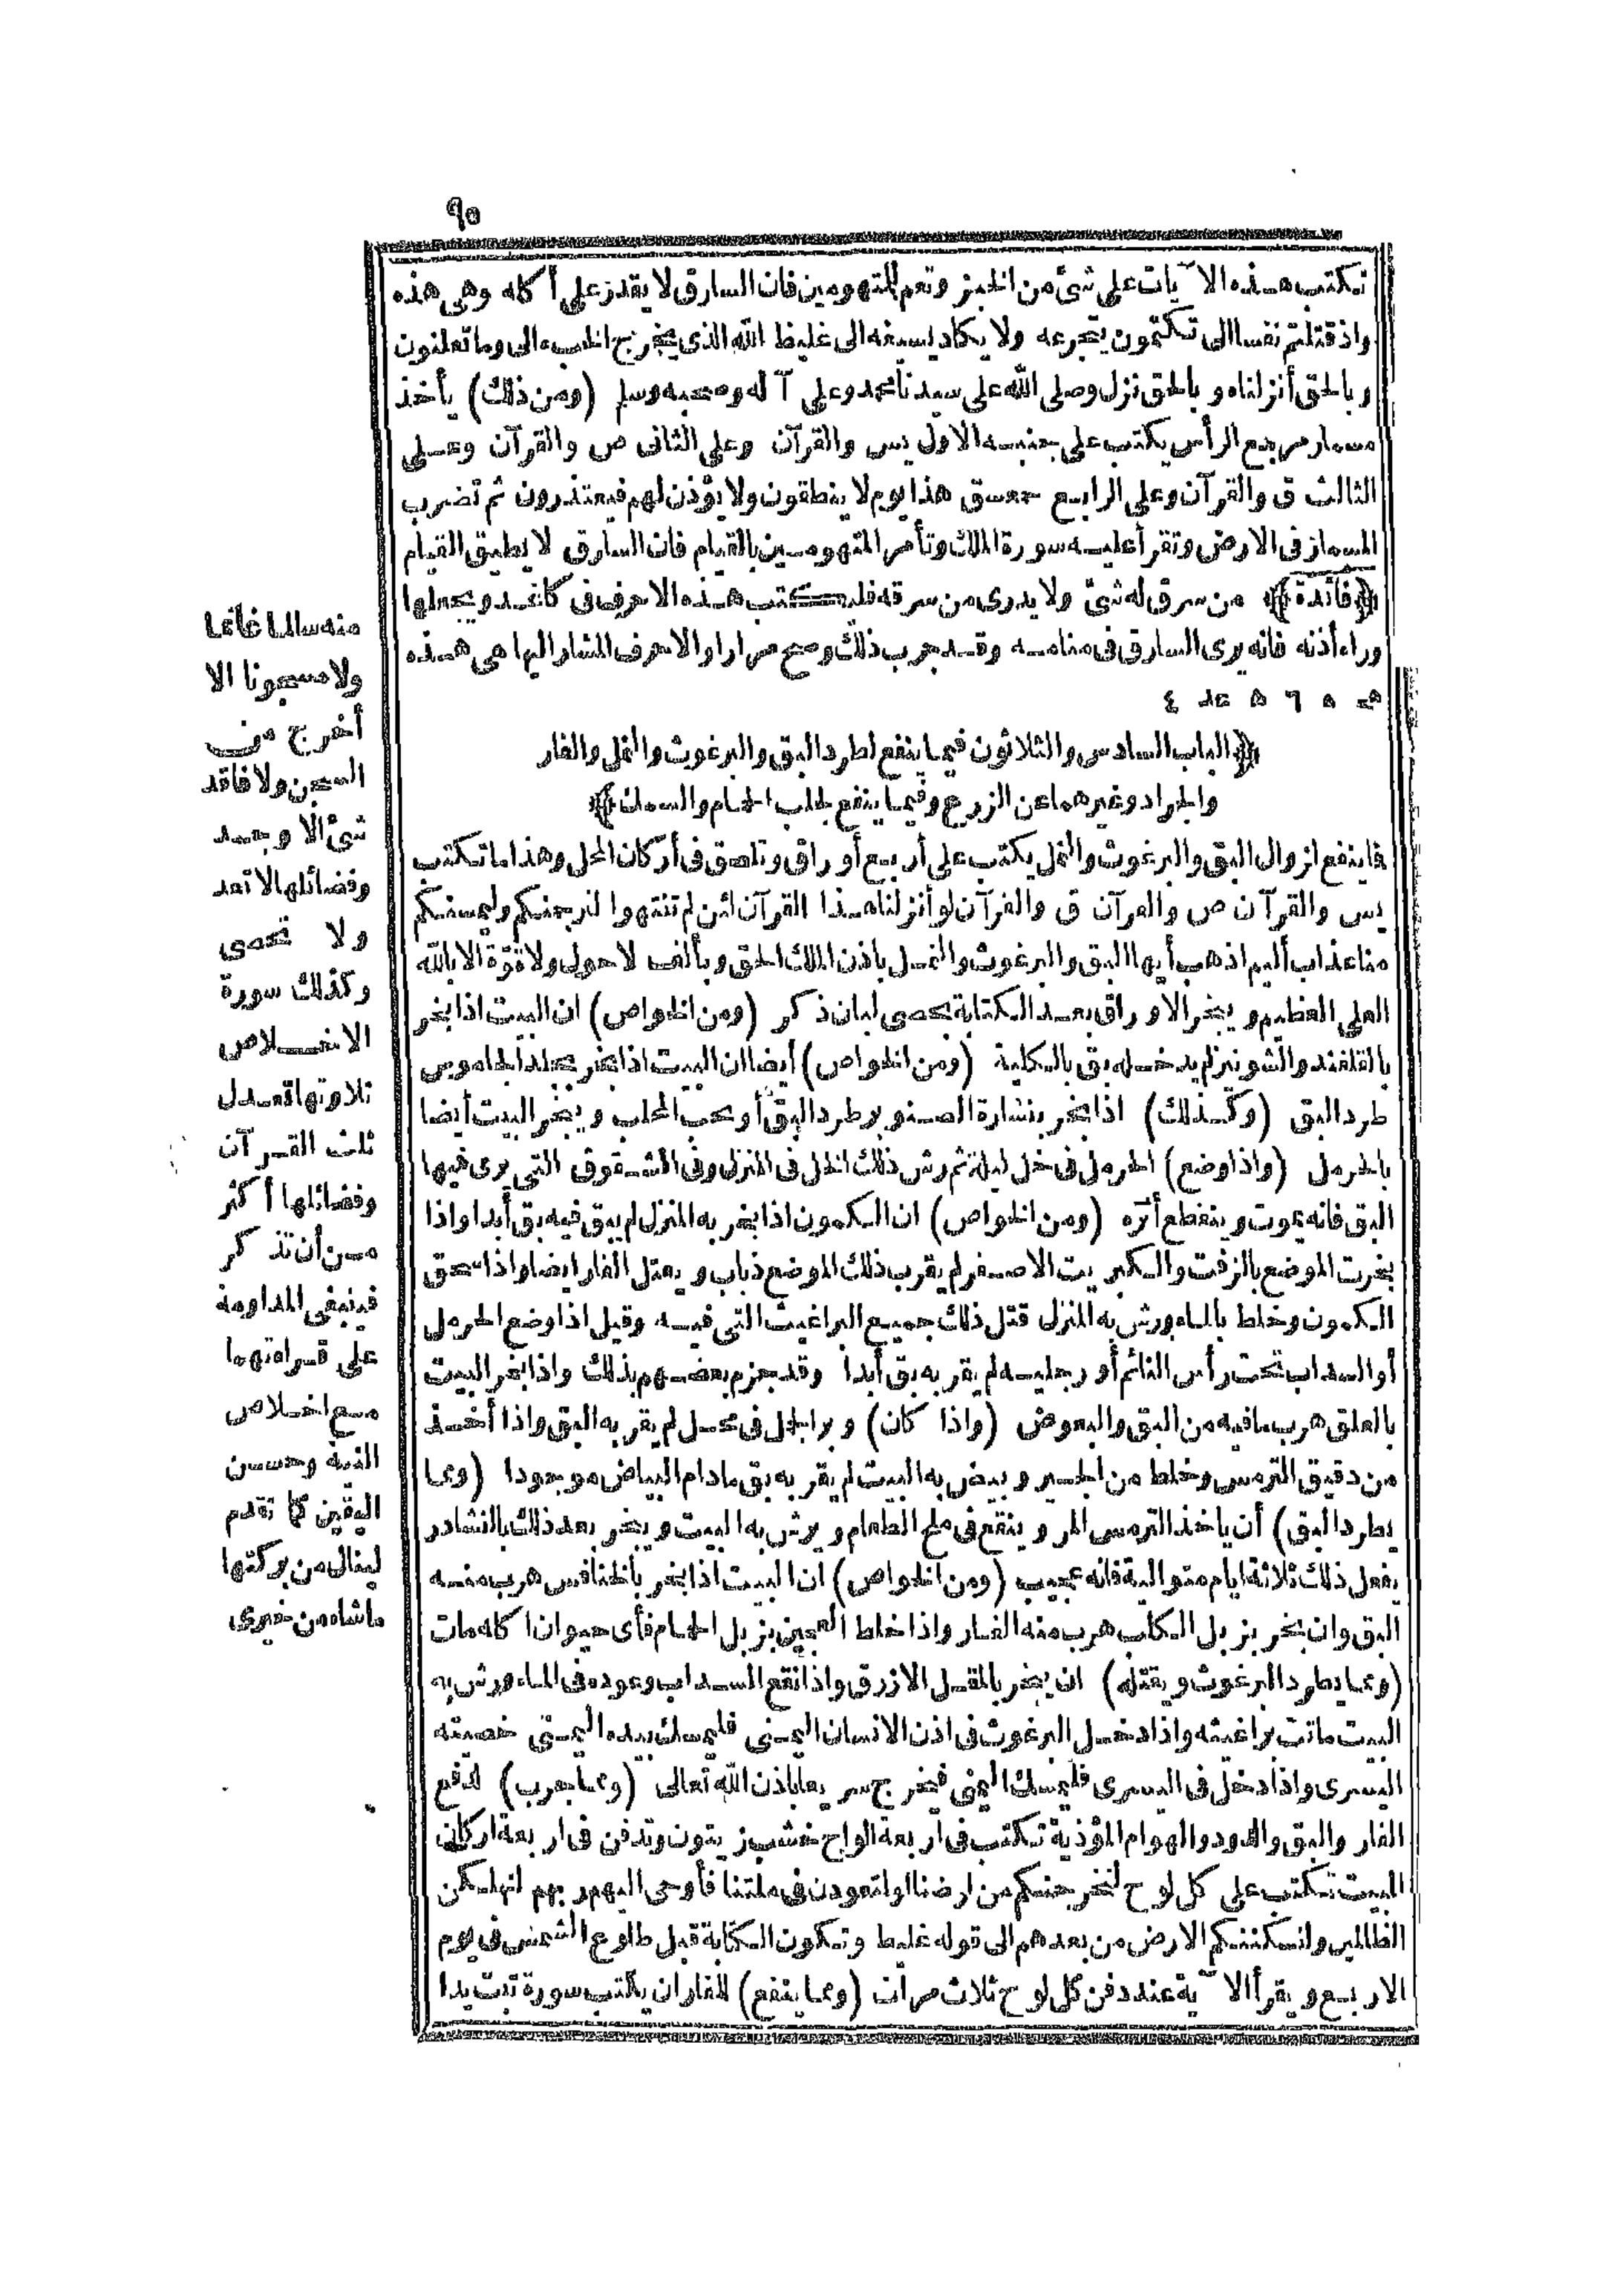 ٩٥
تكتب هذه الآيات على شئ من الخبز وتعم للمتهومين فان السارق لا يقدر على أكله وهى هذه
واذ قتلتم نفسا الى تكتمون يتجرعه ولا يكاد يسيغه الى غليظ الله الذى يخرج الخبء الى وما تعلنون
وبالحق أنزلناه وبالحق نزل وصلى الله على سيدنا محمد وعلى آله وصحبه وسلم (ومن ذلك) يأخذ
مسمار مربع الرأس يكتب على جنبه الاول يس والقرآن وعلى الثانى ص والقرآن وعلى
الثالث ق والقرآن وعلى الرابع حمعسق هذا يوم لا ينطقون ولا يؤذن لهم فيعتذرون ثم تضرب
المسمار فى الارض وتقرأ عليه سورة الملك وتأمر المتهومين بالقيام فان السارق لا يطيق القيام
﴿فائدة﴾ من سرق له شئ ولا يدرى من سرقه فليكتب هذه الاحرف فى كاغد ويجعلها
وراء أذنه فانه يرى السارق فى منامه وقد جرب ذلك وصح مرارا والاحرف المشار اليها هى هذه
﴿الباب السادس والثلاثون فيما ينفع لطرد البق والبرغوث والنمل والفار
والجراد وغيرهما عن الزرع وفيما ينفع لجلب الحمام والسمك﴾
فما ينفع لزوال البق والبرغوث والنمل يكتب على أربع أوراق وتلصق فى أركان المحل وهذا ما تكتب
يس والقرآن ص والقرآن ق والقرآن لو أنزلنا هذا القرآن لئن لم تنتهوا لنرجمنكم وليمسنكم
منا عذاب أليم اذهب أيها البق والبرغوث والنمل باذن الملك الحق وبألف لا حول ولا قوة الا بالله
العلى العظيم ويبخر الاوراق بعد الكتابة بحصى لبان ذكر (ومن الخواص) ان البيت اذا بخر
بالقلقند والشونيز لم يدخله بق بالكلية (ومن الخواص) أيضا ان البيت اذا بخر بجلد الجاموس
طرد البق (وكذلك) اذا بخر بنشارة الصنوبر طرد البق أو بحب المحلب ويبخر البيت أيضا
بالحرمل (واذا وضع) الحرمل فى خل ليلة ثم رش ذلك الخل فى المنزل وفى الشقوق التى يرى فيها
البق فانه يموت وينقطع أثره (ومن الخواص) ان الكمون اذا بخر به المنزل لم يبق فيه بق أبدا واذا
بخرت الموضع بالزفت والكبريت الاصفر لم يقرب ذلك الموضع ذباب ويعتل الفار ايضا واذا سحق
الكمون وخلط بالماء ورش به المنزل قتل ذلك جميع البراغيث التى فيه وقيل اذا وضع الحرمل
أو السداب تحت رأس النائم أو رجليه لم يقربه بق أبدا وقد جزم بعضهم بذلك واذا بخر البيت
بالعلق هرب ما فيه من البق والبعوض (واذا كان) وبر الجمل فى محل لم يقربه البق واذا أخذ
من دقيق الترمس وخلط من الجير وبيض به البيت لم يقربه بق مادام البياض موجودا (ومما
يطرد البق) أن ياخذ الترمس المر وينقع فى ملح الطعام ويرش به البيت ويبخر بعد ذلك بالنشادر
يفعل ذلك ثلاثة ايام متوالية فانه عجيب (ومن الخواص) ان البيت اذا بخر بالخنافس هرب منه
البق وان بخر بزبل الكلب هرب منه الفار واذا خلط العجين بزبل الحمام فأى حيوان اكله مات
(ومما يطرد البرغوث ويقتله) ان يبخر بالمقل الازرق واذا نقع السداب وعوده فى الماء ورش به
البيت ماتت براغيثه واذا دخل البرغوث فى اذن الانسان اليمنى فليمسك بيده اليمنى خصيته
اليسرى واذا دخل فى اليسرى فليمسك اليمنى فيخرج سريعا باذن الله تعالى (ومما جرب) لدفع
الفار والبق والدود والهوام المؤذية تكتب فى اربعة الواح خشب زيتون وتدفن فى اربعة اركان
البيت تكتب على كل لوح لنخرجنكم من ارضنا او لتعودن فى ملتنا فأوحى اليهم ربهم لنهلكن
الظالمين ولنسكننكم الارض من بعدهم الى قوله غليظ وتكون الكتابة قبل طلوع الشمس فى يوم
الاربع ويقرأ الآية عند دفن كل لوح ثلاث مرات (ومما ينفع) للفار ان يكتب سورة تبت يدا
منه سالما غانما
ولا مسجونا الا
أخرج من
السجن ولا فاقد
شئ الا وجد
وفضائلها لا تعد
ولا تحصى
وكذلك سورة
الاخلاص
تلاوتها تعدل
ثلث القرآن
وفضائلها أكثر
من أن تذكر
فينبغى المداومة
على قراءتهما
مع اخلاص
النية وحسن
اليقين كما تقدم
لينال من بركتها
ما شاء من خيرى